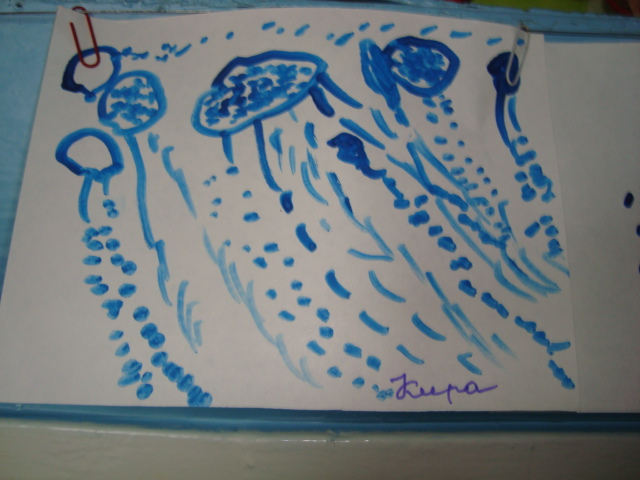 Кира